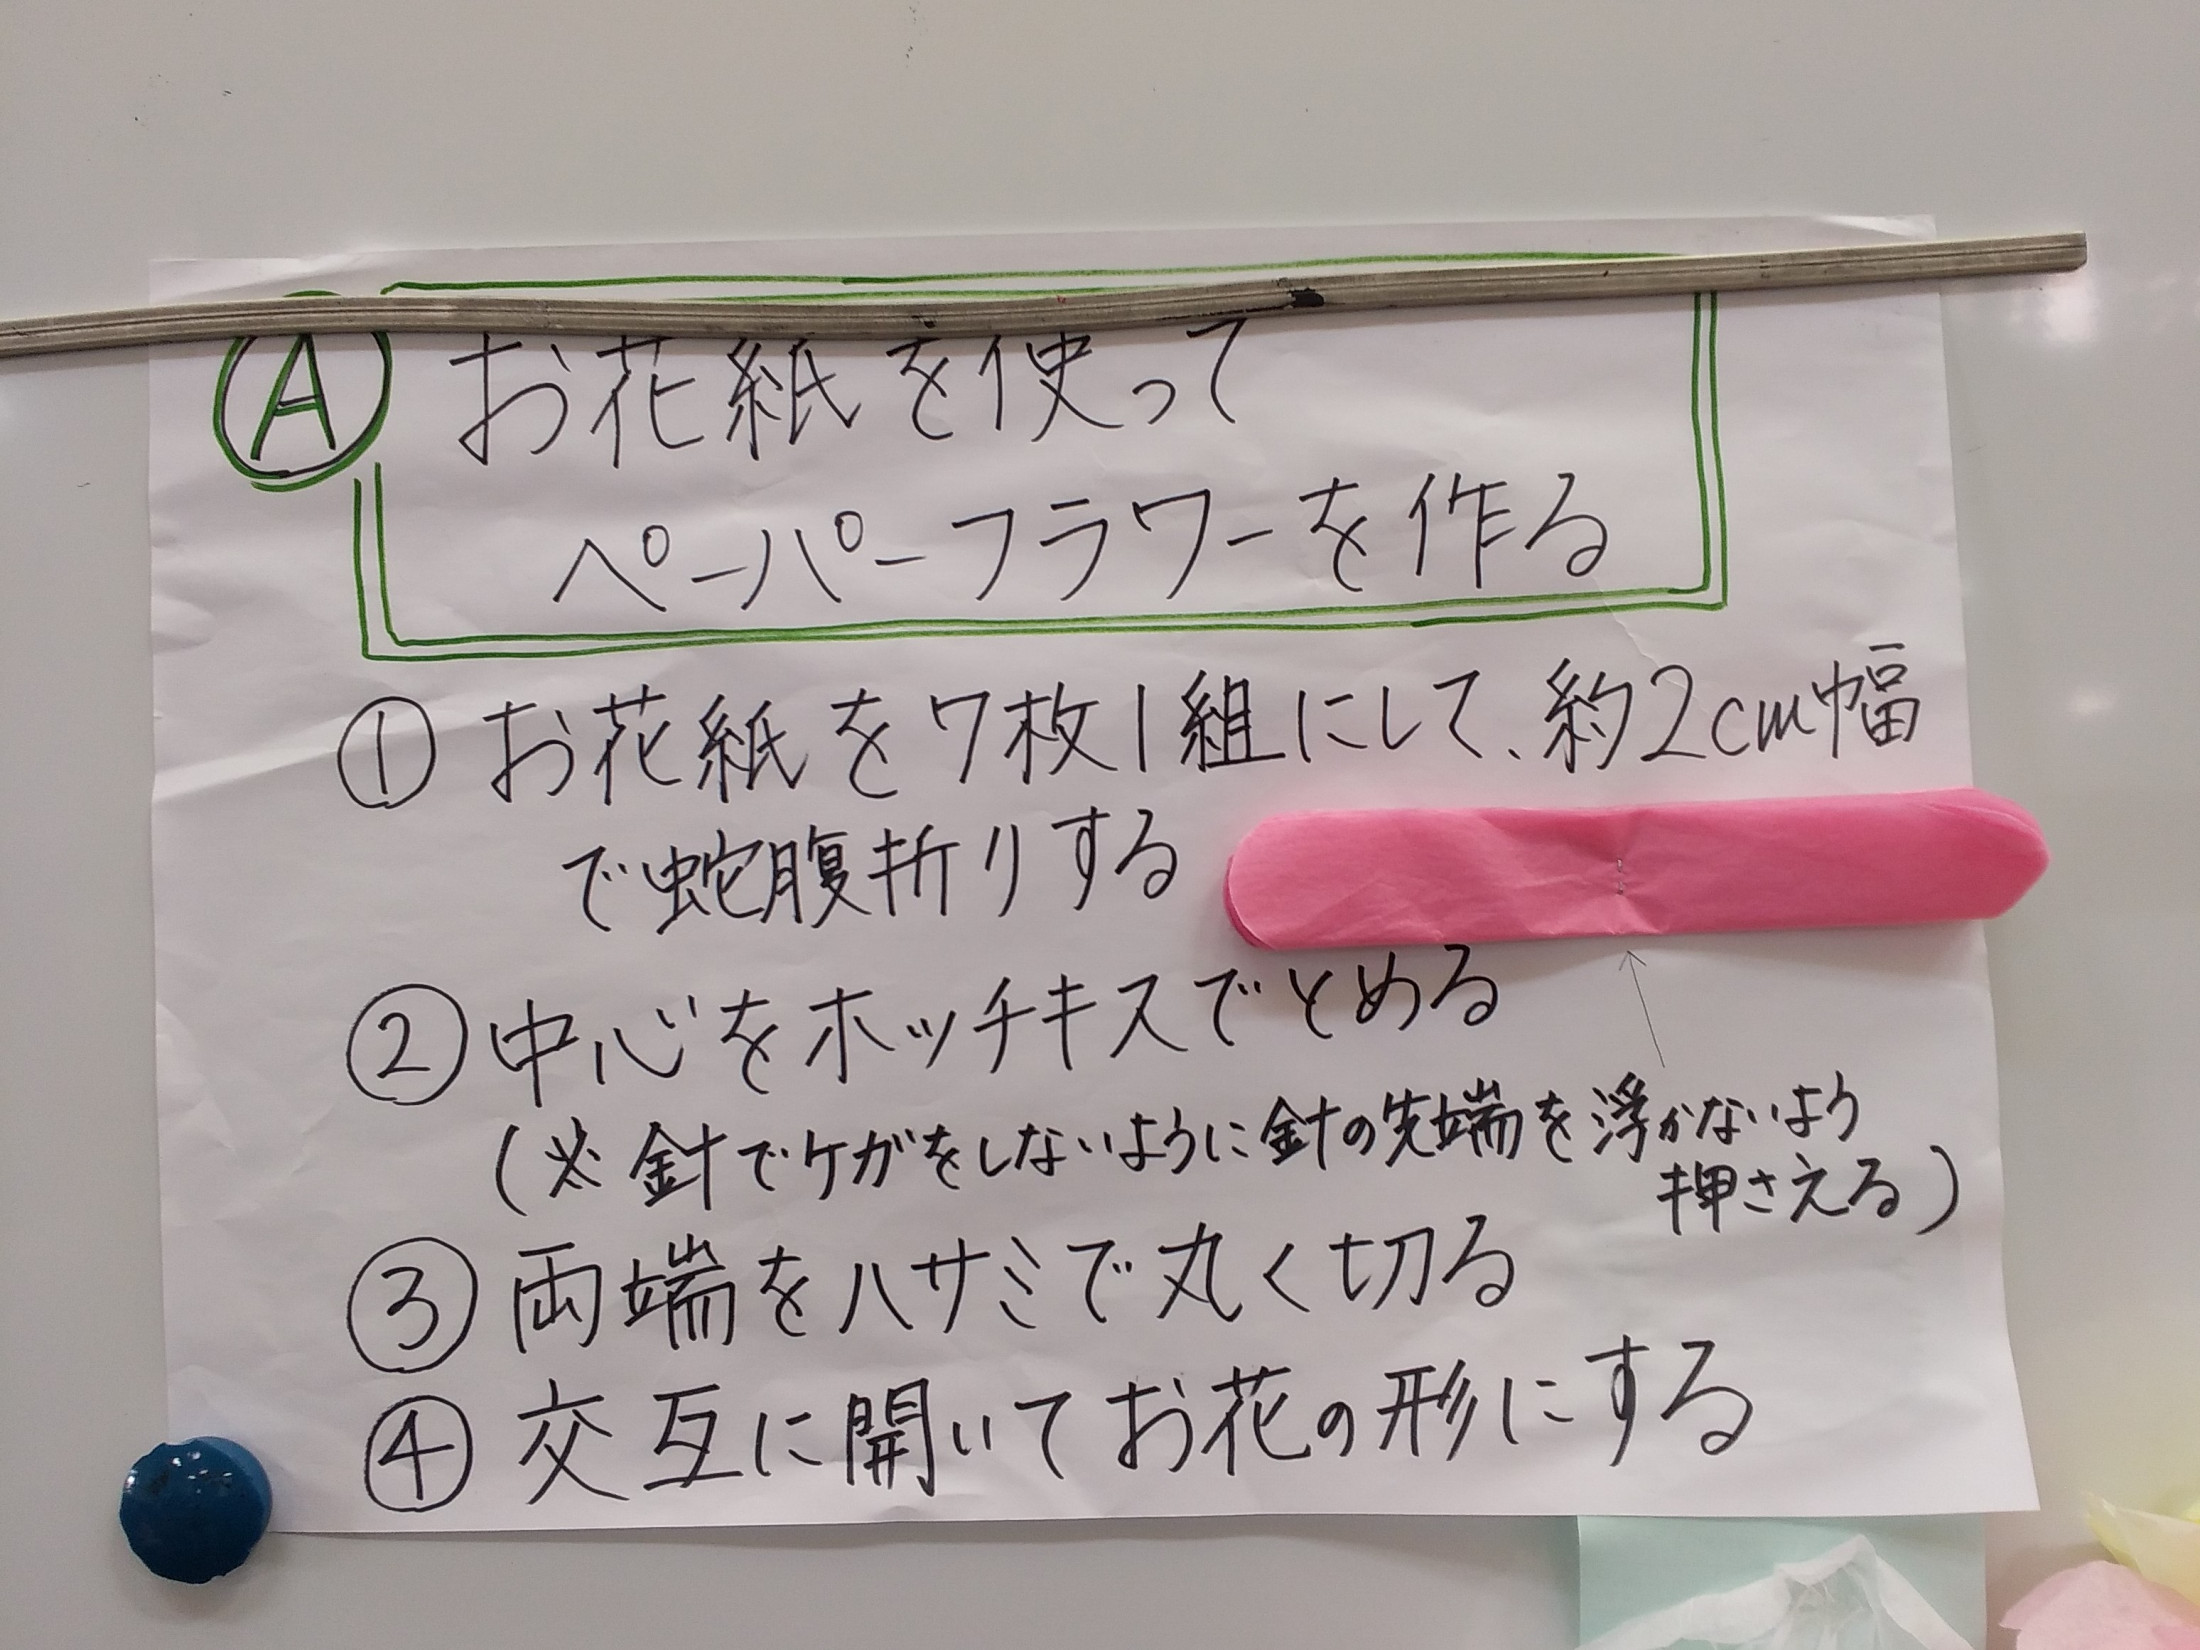 Ⓐ お花紙を使って
ペーパーフラワーを作る
① お花紙を7枚1組にして、約2cm幅
で蛇腹折りする
② 中心をホッチキスでとめる
(※ 針でケガをしないように針の先端を浮かないよう
押さえる)
③ 両端をハサミで丸く切る
④ 交互に開いてお花の形にする